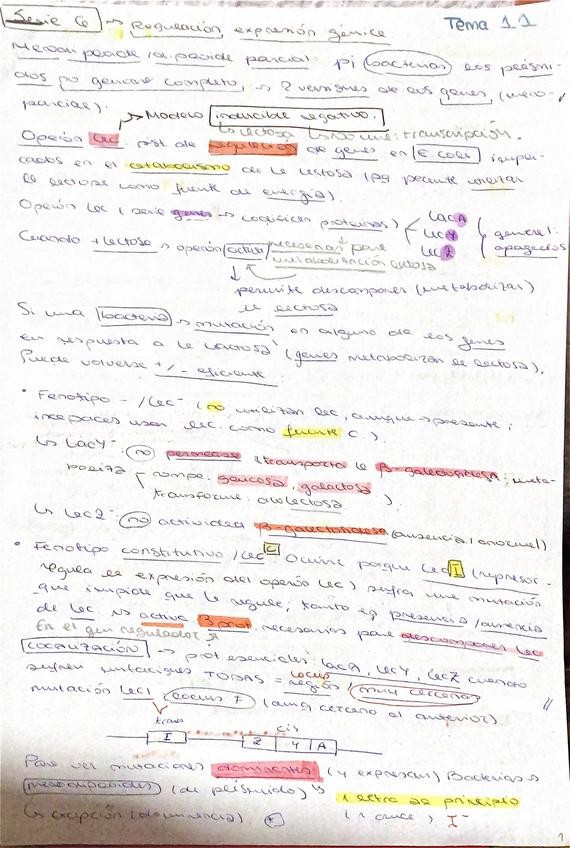 Serie 6 → Regulación expresión génica
Tema 11
Merodiploide /diploide parcial: pj bacterias los plásmi-
dos no genoma completo, → 2 versiones de los genes (mero-
parcial).
→ Modelo inducible negativo.
↳ lactosa ↳ NO une: transcripción.
Operón lac: sist. de regulación de genes en E. coli impli-
cados en el catabolismo de la lactosa (pq permite utilizar
la lactosa como fuente de energía).
Operón lac (serie genes → codifican proteínas)
LacA
LacY
LacZ
general:
apagados
Cuando + lactosa → operón activa necesarias para
metabolización lactosa
permite descomponer (metabolizar)
la lactosa
Si una bacteria → mutación en alguno de los genes
en respuesta a la lactosa (genes metabolizan la lactosa).
Puede volverse +/- eficiente
• Fenotipo - /lac⁻ (no utilizan lac, aunque presente;
incapaces usar lac. como fuente C.)
↳ LacY⁻: no permease transporta la β-galactosidasa
rompe: glucosa, galactosa
transforma: alolactosa
↳ LacZ⁻ no actividad β-galactosidasa (ausencia/anormal)
• Fenotipo constitutivo /lac C Ocurre porque Lac I (represor
regula la expresión del operón lac) sufra una mutación
que impide que la regule, tanto en presencia/ausencia
de lac. → activa 3 prot necesarias para descomponer lac
En el gen regulador
→ prot esenciales: lacA, lacY, lacZ cuando
sufren mutaciones TODAS = locus
región muy cercano
mutación lacI locus I (aunq cercano al anterior).
trans
cis
I
Z Y A
Para ver mutaciones dominantes (y expresan) Bacterias
merodiploides (de plásmido) ↳ 1 letra de principio
↳ excepción (dominancia)
(1 cruce) I⁻
1